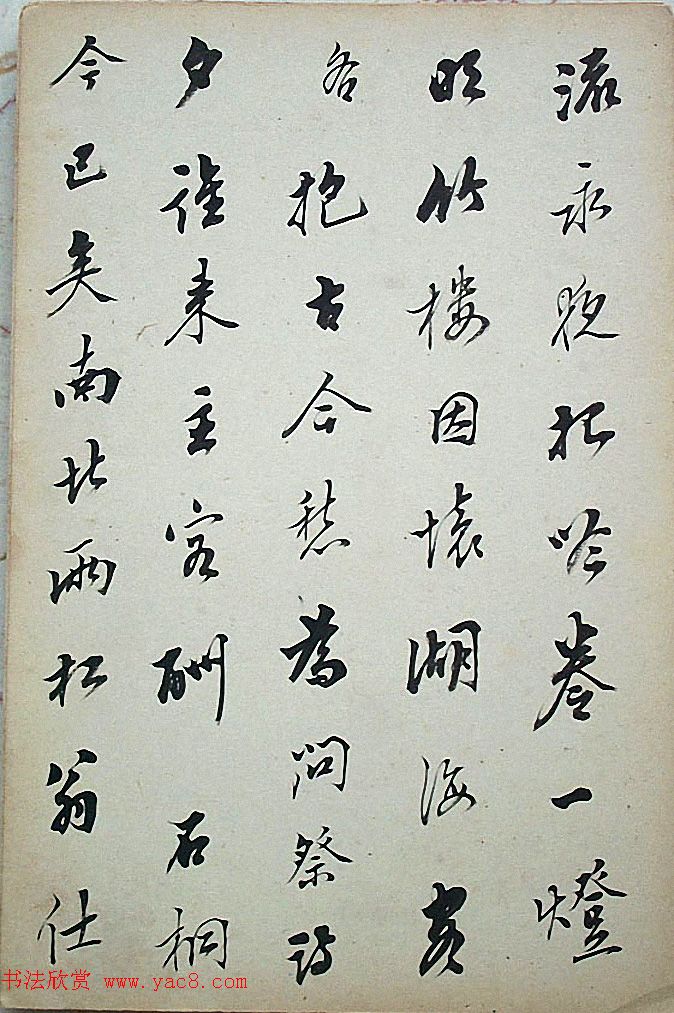 流永夜抛吟卷一燈
明竹樓因懷湖海客
各抱古今愁為問祭詩
夕誰来主客酬 石桐
今已矣南北兩松翁仕
书法欣赏 www.yac8.com